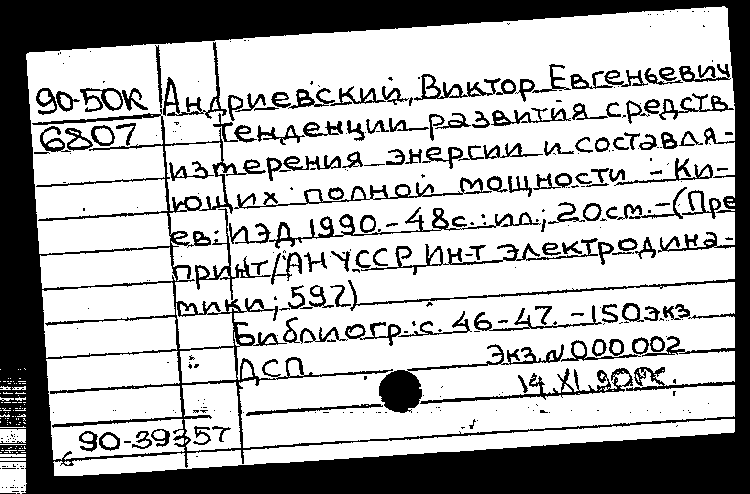 90-50К Андриевский, Виктор Евгеньевич
6807 Тенденции развития средств
измерения энергии и составля-
ющих полной мощности - Ки-
ев: ИЭД, 1990. - 48с.: ил.; 20см. - (Пре
принт/АН УССР, Ин-т электродина-
мики; 597)
Библиогр.: с. 46-47. - 150 экз.
ДСП. Экз. N 000 002
14.XI.90
90-39357